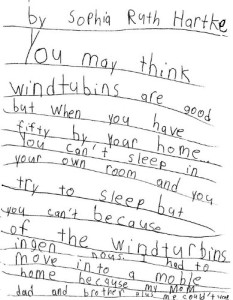 by Sophia Ruth Hartke
You may think
windtubins are good
but when you have
fifty by your home..
you can't sleep in
your own room and you
try to sleep but
you can't because
of the windturbins
ingen nous I had to
move into a moble
home because my mom
dad and brother plus me could't